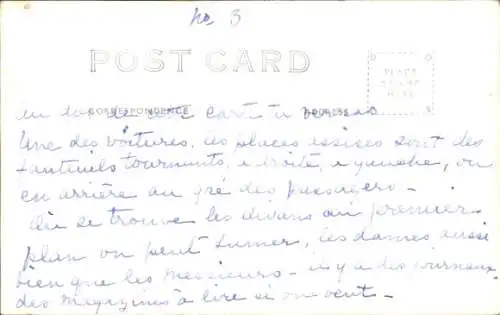 No 3
POST CARD
PLACE STAMP HERE
CORRESPONDENCE ADDRESS
au dos de cette carte tu
Une des voitures, les places assises sont des
fauteuils tournants, a droite, a gauche, ou
en arrière au gré des passagers -
Où se trouve les divans au premier
plan on peut fumer, les dames aussi
bien que les messieurs - il y a des journaux
des magazines à lire si on veut -